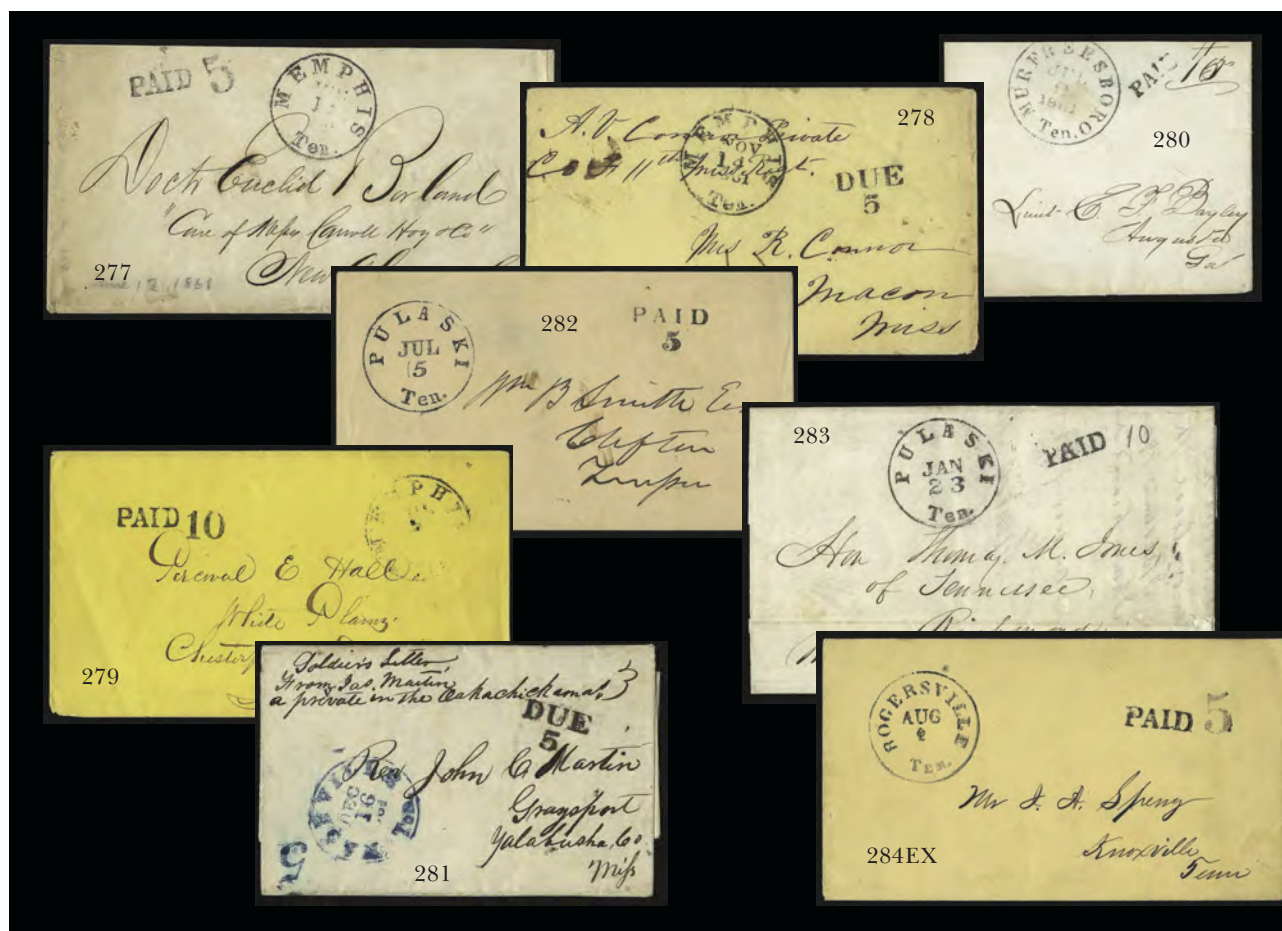 PAID 5
MEMPHIS
Ten.
Doctr Euclid Borland
"Care of Messrs Carroll Hoy & Co"
New
277
June 12, 1861
A. V. Connor Private
Co F 11th Miss Regt.
MEMPHIS
NOV
14
1861
Ten.
278
DUE
5
Mrs R. Connor
Macon
Miss
MURFREESBORO
1861
Ten.
PAID
280
Lieut E. F. Bayley
Augusta
Ga
PULASKI
JUL
15
Ten.
282
PAID
5
Wm B Smith
Clifton
283
PULASKI
JAN
23
Ten.
PAID 10
Hon Thomas M. Jones
of Tennessee
Richmond
PAID 10
MEMPHIS
Percival E. Hall
White Plains
Chester
279
Soldier's Letter
From Jas. Martin
a private in the
DUE
5
DEC
16
Ten
5
Rev John C Martin
Graysport
Yalabusha, Co.
Miss
281
ROGERSVILLE
AUG
Ten.
PAID 5
Mr
Knoxville
Tenn
284EX